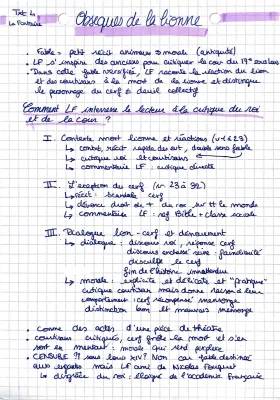 Txt 4
La Fontaine
Obsèques de la lionne
• Fable = petit récit animaux + morale (antiquité)
• LF s'inspire des anciens pour critiquer la cour du 17e sous Louis
• Dans cette fable versifiée, LF raconte la réaction du lion
et des courtisans à la mort de la lionne et distingue
le personnage du cerf ≠ deuil collectif
Comment LF intéresse le lecteur à la critique du roi
et de la cour ?
I. Contexte mort lionne et réactions (v 1 à 23)
↳ récit rapide
↳ critique roi et courtisans
↳ commentaire LF : critique directe
II. L'exception du cerf (v 23 à 32)
↳ récit : scandale cerf
↳ discours direct du roi sur la mort
↳ commentaire LF : réf Bible + classe sociale
III. Dialogue lion - cerf et dénouement
↳ dialogue : discours roi, réponse cerf
discours enchâssé reine : familiarité
disculpe le cerf
fin de l'histoire inattendue
↳ morale : explicite et délicate et "pratique"
critique courtisan mais donne raison à leur
comportement : cerf récompensé mensonge
distinction bon et mauvais mensonge
• comme des actes d'une pièce de théâtre
• courtisans critiqués, cerf frôle la mort et s'en
sort en mentant : morale qui sera explicite
• CENSURE ?! sous Louis XIV ? Non car fable destinée
aux enfants mais LF ami de Nicolas Fouquet
↳ disgrâce du roi : de l'académie française